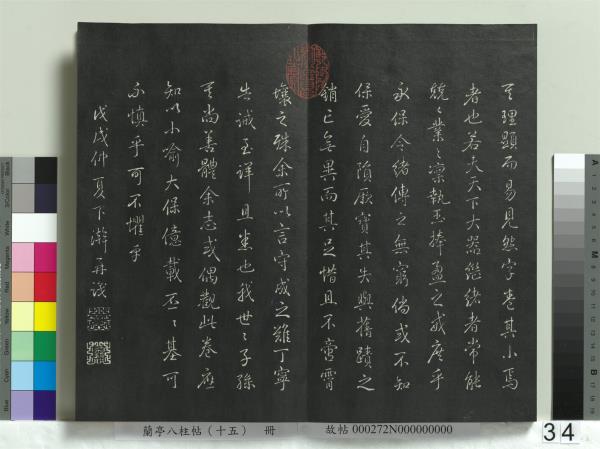 其理顯而易見然字卷其小焉
者也若夫天下大器繼緒者常能
兢兢業業凛執玉捧盈之戒庶乎
永保令緒傳之無窮倘或不知
保愛自隳厥寶其失與搨蹟之
銷亡無異而其足惜且不啻霄
壤之殊余所以言守成之難丁寧
告誡至詳且盡也我世世子孫
其尚善體余志或偶觀此卷應
知以小喻大保億載丕丕基可
不慎乎可不懼乎
戊戌仲夏下澣再識
蘭亭八柱帖（十五） 冊
故帖 000272N000000000
34